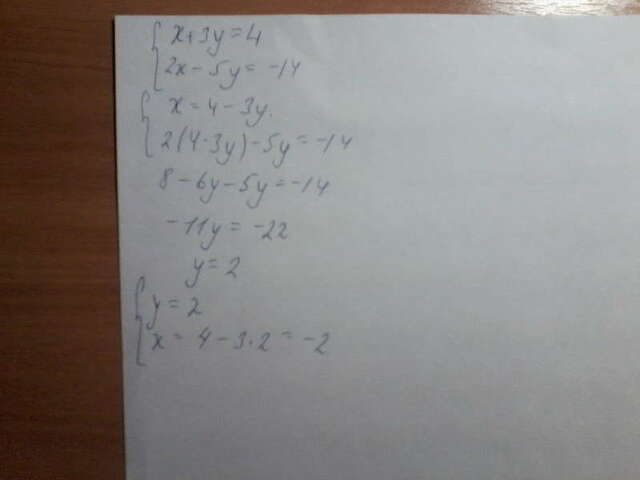 x+3y=4
2x-5y=-14
x=4-3y.
2(4-3y)-5y=-14
8-6y-5y=-14
-11y=-22
y=2
y=2
x=4-3·2=-2